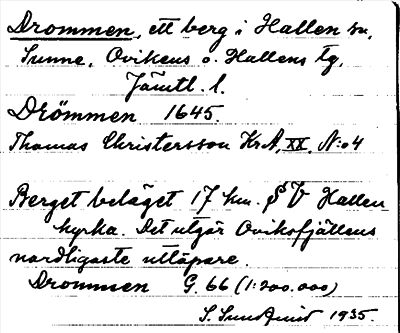 Drommen, ett berg i Hallen sn,
Sunne, Ovikens o. Hallens tg,
Jämtl. l.
Drömmen 1645.
Thomas Christersson KrA, XX, N:o 4
Berget beläget 17 km. SV Hallen
kyrka. Det utgör Oviksfjällens
nordligaste utlöpare.
Drommen G. 66 (1:200.000)
S. Sundquist 1935.